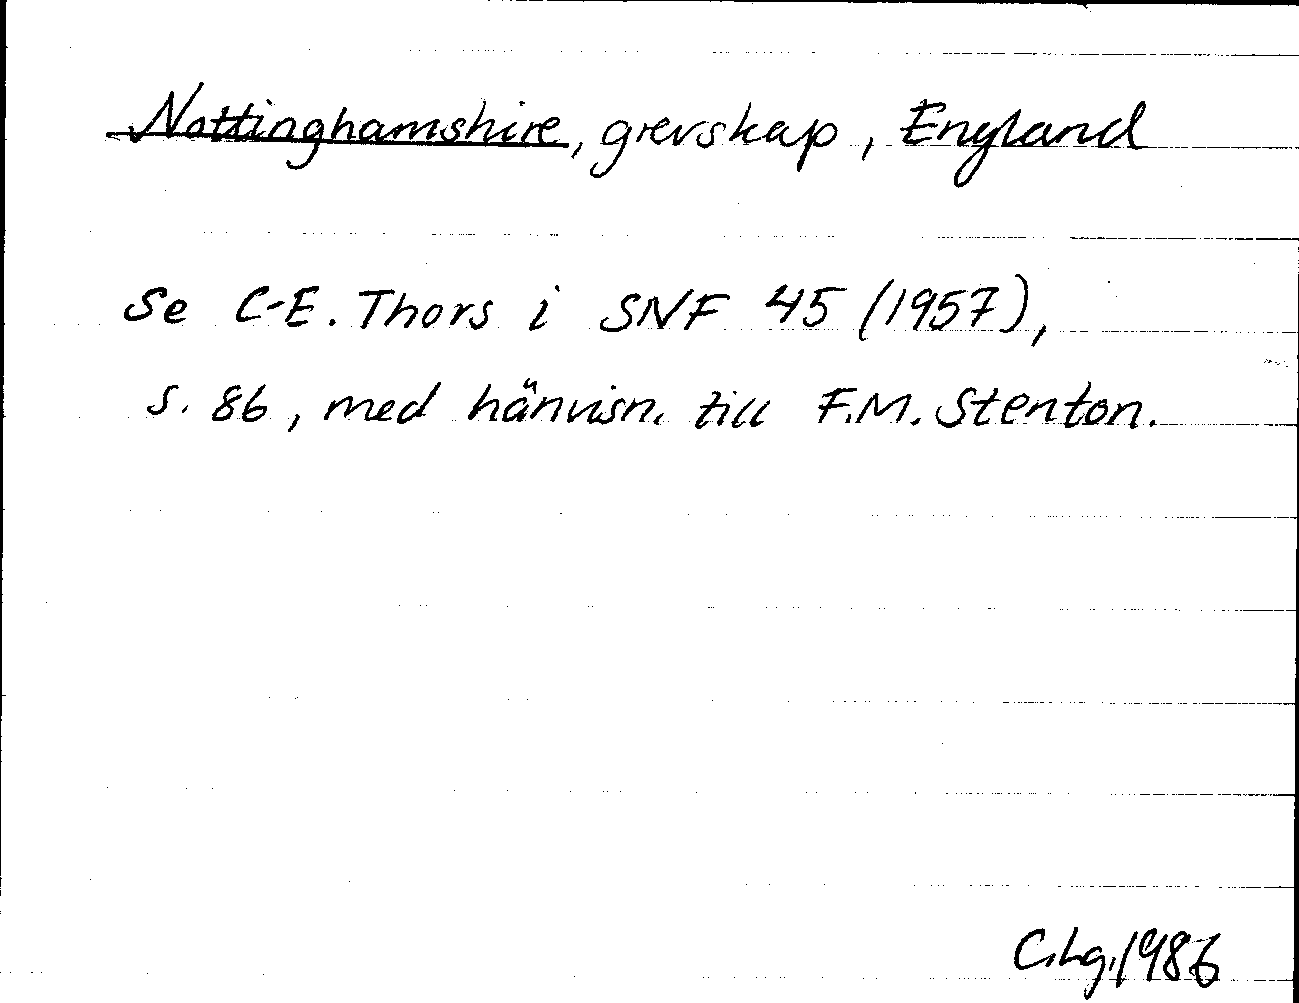 Nottinghamshire, grevskap, England
Se C-E. Thors i SNF 45 (1957),
s. 86, med hänvisn. till F.M. Stenton.
C.Lg. 1986